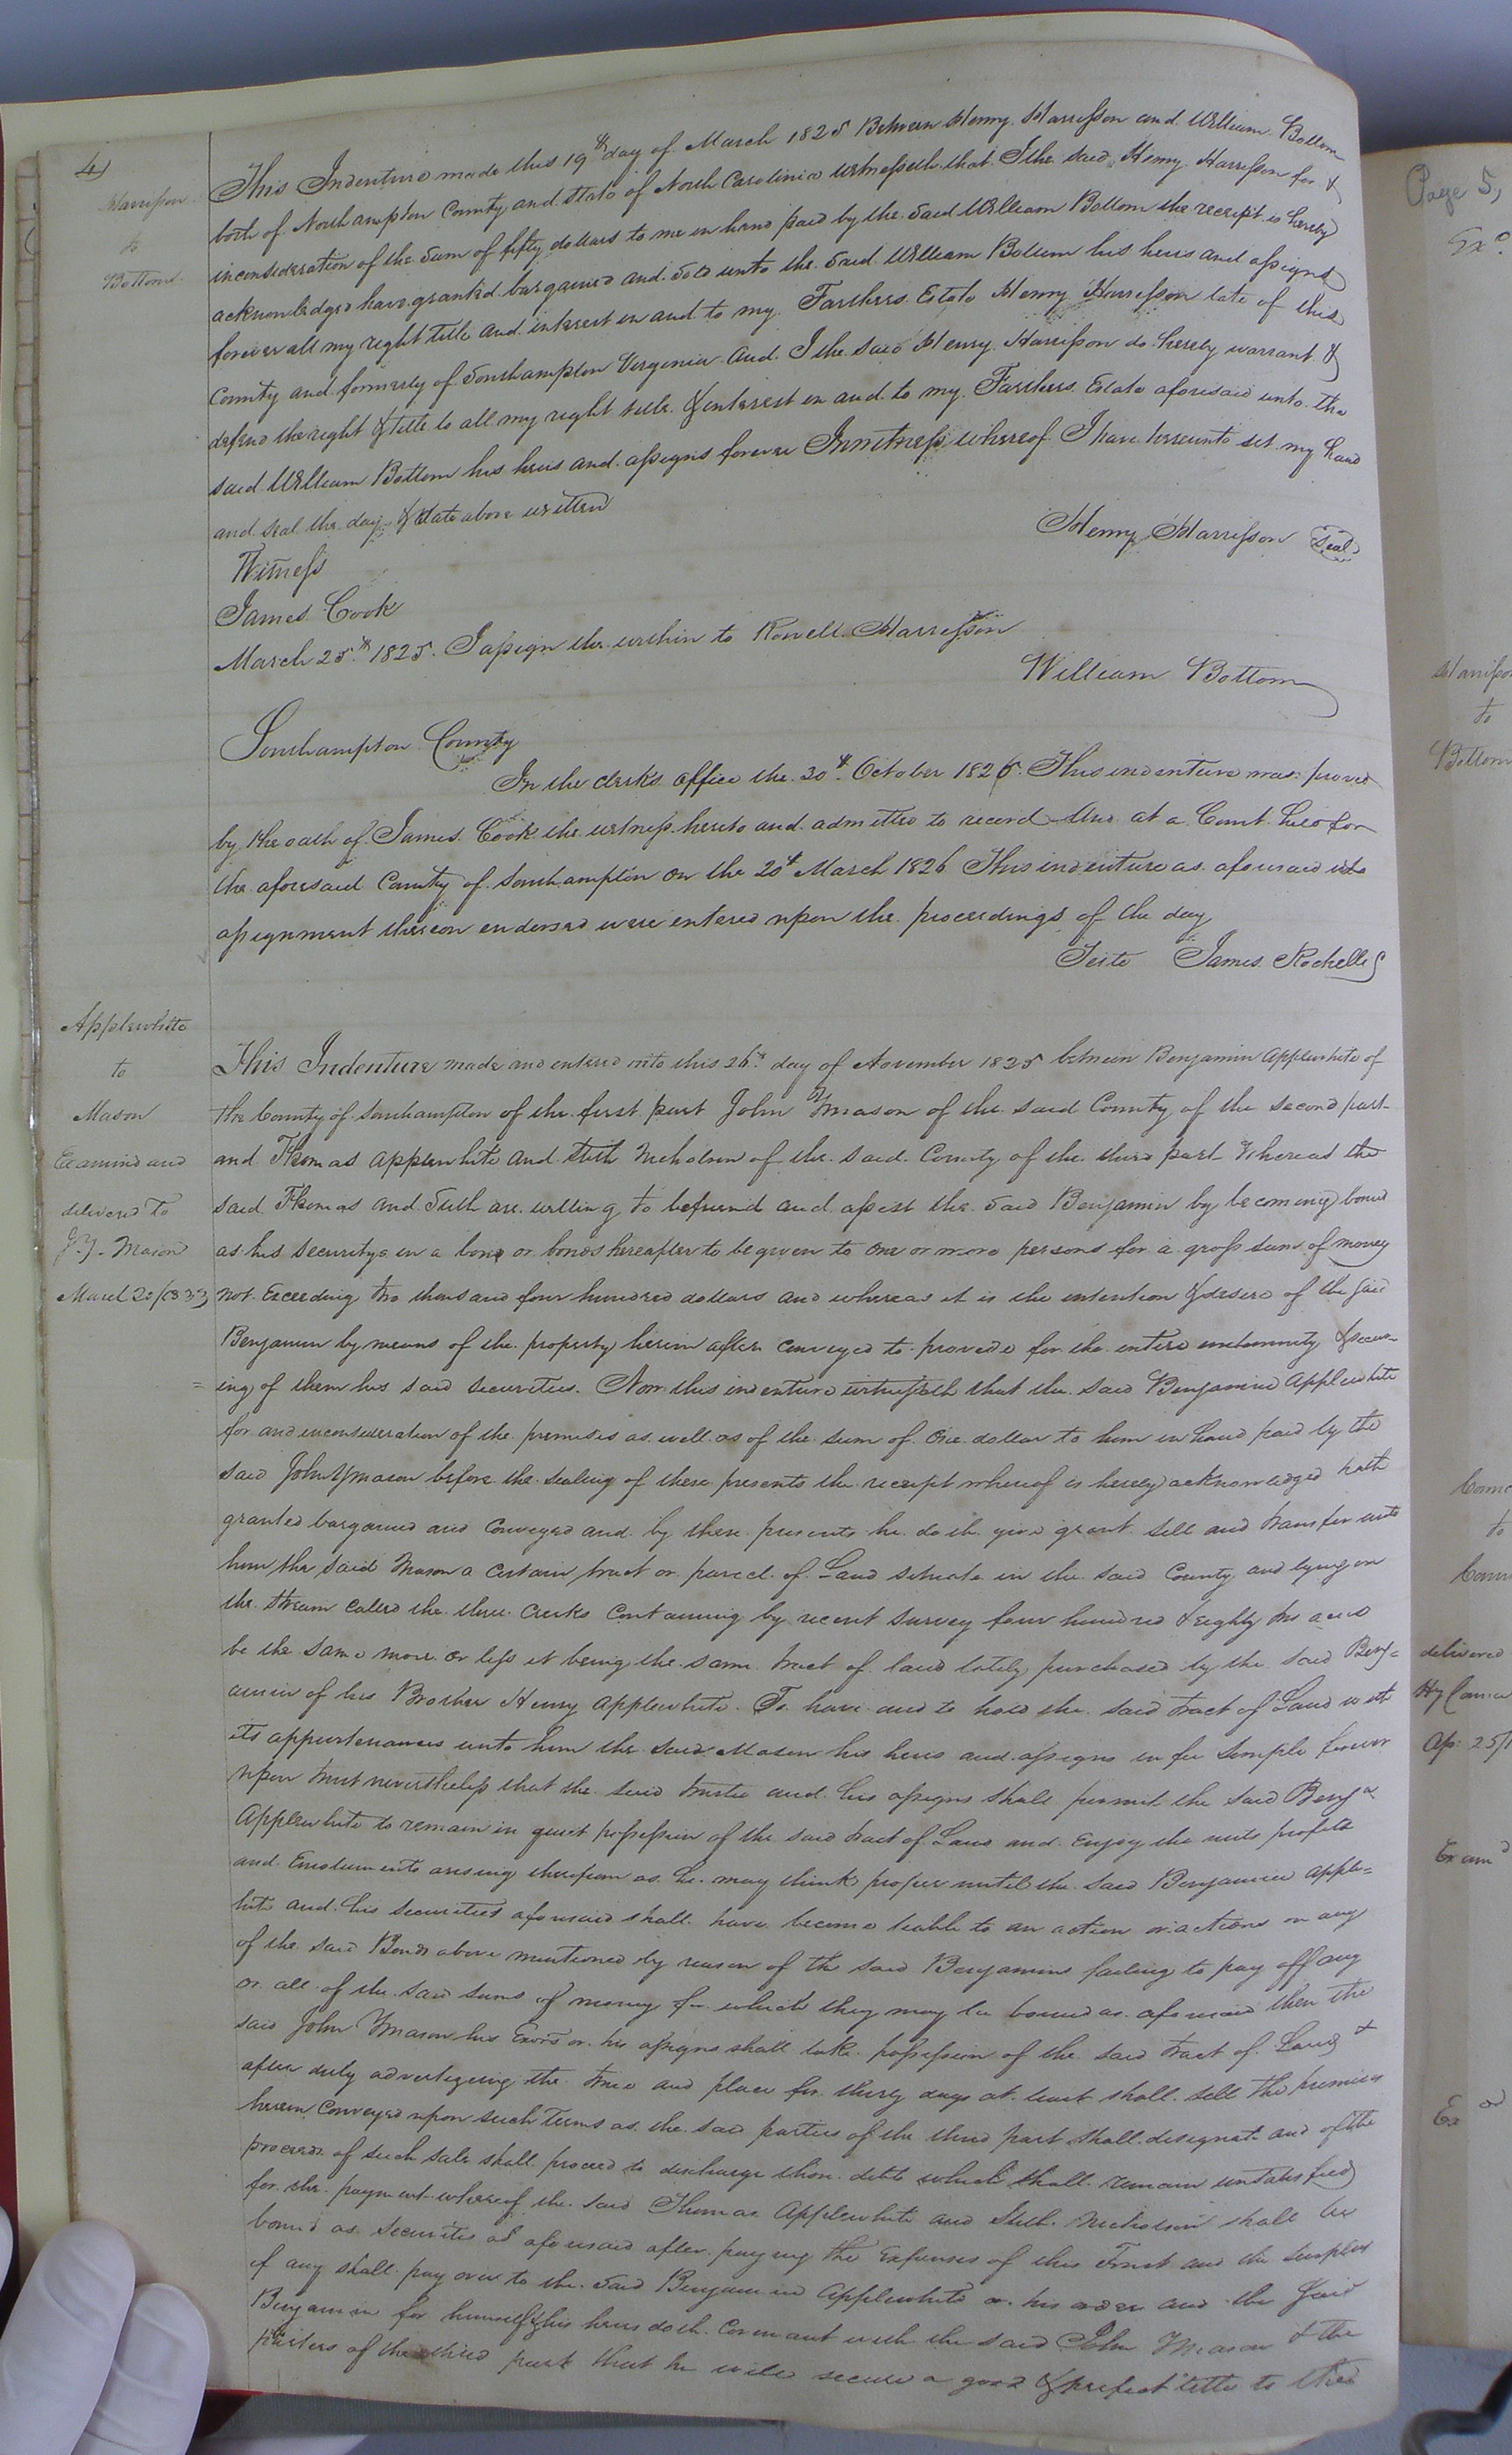 4)
Harrisson
to
Bottom
This Indenture made this 19th day of March 1825 Between Henry Harrisson and William Bottom
both of Northampton County and State of North Carolinia witnesseth that I the said Henry Harrisson for &
inconsideration of the Sum of fifty dollars to me in hand paid by the Said William Bottom the receipt is hereby
acknowledged have granted bargained and Sold unto the Said William Bottom his heirs and assigns
forever all my right title and interest in and to my Farthers Estate Henry Harrisson late of this
County and formerly of Southampton Virginia And I the said Henry Harrisson do hereby warrant &
defend the right & title to all my right title & interest in and to my Farthers Estate aforesaid unto the
said William Bottom his heirs and assigns forever Inwitness whereof I have hereunto set my hand
and seal the day & date above written
Henry Harrisson Seal
Witness
James Cook
March 25th 1825. I assign the within to Rowell Harrisson
William Bottom
Southampton County
In the clerks office the 30th October 1825. This indenture was proved
by the oath of James Cook the witness hereto and admitted to record And at a Court held for
the aforesaid County of Southampton on the 20th March 1826 This indenture as aforesaid with
assignment thereon endorsed were entered upon the proceedings of the day
Teste James Rochelle
Applewhite
to
Mason
Examined and
delivered to
J.Y. Mason
March 20/1833
This Indenture made and entered into this 26th day of November 1825 between Benjamin Applewhite of
the County of Southampton of the first part John Y Mason of the said County of the second part
and Thomas Applewhite and Stith Nicholson of the said County of the third part Whereas the
said Thomas and Stith are willing to befriend and assist the said Benjamin by becoming bound
as his securitys in a bond or bonds hereafter to be given to one or more persons for a gross sum of money
not Exceeding two thousand four hundred dollars and whereas it is the intention & desire of the said
Benjamin by means of the property herein after conveyed to provide for the entire indemnity & secur-
=ing of them his said securities. Now this indenture witnesseth that the said Benjamin Applewhite
for and inconsideration of the premises as well as of the sum of One dollar to him in hand paid by the
said John Y Mason before the sealing of these presents the receipt whereof is hereby acknowledged hath
granted bargained and Conveyed and by these presents he doth give grant sell and transfer unto
him the said Mason a certain tract or parcel of Land situate in the said County and lying on
the stream called the three Creeks Containing by recent survey four hundred & eighty two acres
be the same more or less it being the same tract of land lately purchased by the said Benj=
amin of his Brother Henry Applewhite. To have and to hold the said tract of Land with
its appurtenances unto him the said Mason his heirs and assigns in fee simple forever
upon trust nevertheless that the said trustee and his assigns shall permit the said Benja
Applewhite to remain in quiet possession of the said tract of Land and Enjoy the rents profits
and Emoluments arising therefrom as he may think proper until the said Benjamin Apple=
hite and his securities aforesaid shall have become liable to an action or actions on any
of the said Bonds above mentioned by reason of the said Benjamins failing to pay off any
or all of the said sums of money for which they may be bound as aforesaid then the
said John Y Mason his Exors or his assigns shall take possession of the said tract of Land &
after duly advertizeing the time and place for thirty days at least shall sell the premises
herein Conveyed upon such terms as the said parties of the third part shall designate and of the
proceeds of such sale shall proceed to discharge those debts which shall remain unsatisfied
for the payment whereof the said Thomas Applewhite and Stith Nicholson shall be
bound as securities as aforesaid after paying the Expenses of this Trust and the surplus
if any shall pay over to the said Benjamin Applewhite or his order and the said
Benjamin for himself & his heirs doth Covenant with the said John Y Mason & the
parties of the third part that he will secure a good & perfect title to this
Page 5,
Exd
Harrisson
to
Bottom
to
delivered
Ap: 25/
Examd
Ex d